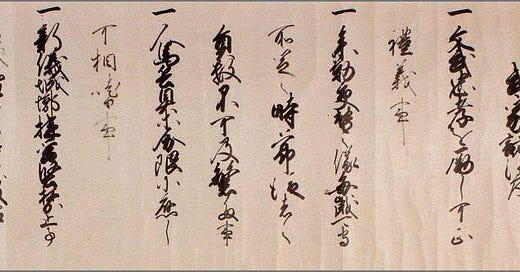 武家諸法度
一 文武忠孝を励し可正
禮義事
一 参勤交替之儀毎歳可守
所定之時節従者之
員数不可及繁多事
一 人馬兵具等分限に応し
可相嗜事
一 新儀之城郭構営堅禁止之